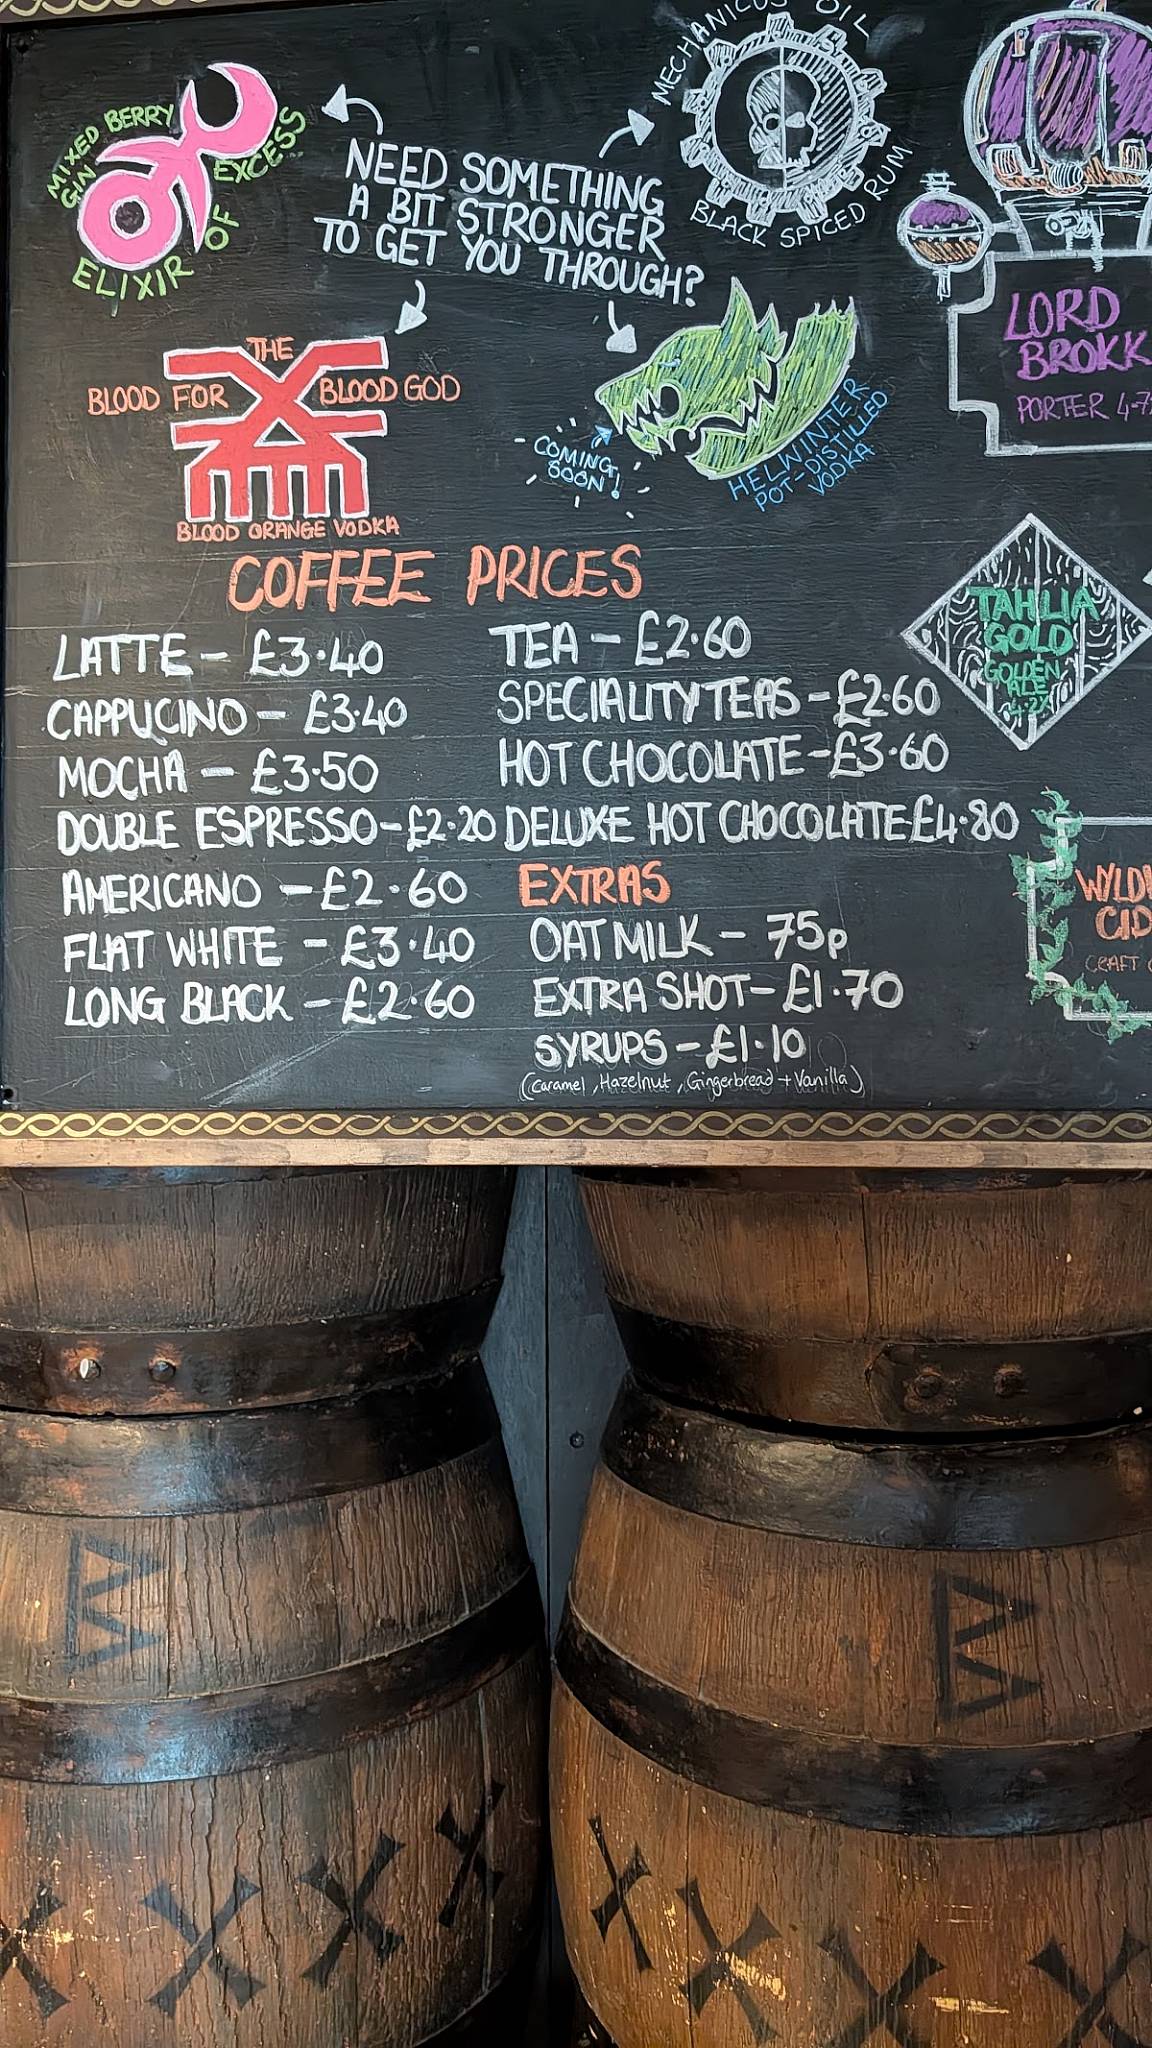 MIXED BERRY
GIN
ELIXIR OF EXCESS
NEED SOMETHING
A BIT STRONGER
TO GET YOU THROUGH?
MECHANICUS OIL
BLACK SPICED RUM
THE
BLOOD FOR
BLOOD GOD
BLOOD ORANGE VODKA
COMING
SOON!
HELWINTER
POT-DISTILLED
VODKA
LORD
BROKK
PORTER
TAHLIA
GOLD
GOLDEN
ALE
4.2%
COFFEE PRICES
LATTE - £3.40
CAPPUCINO - £3.40
MOCHA - £3.50
DOUBLE ESPRESSO - £2.20
AMERICANO - £2.60
FLAT WHITE - £3.40
LONG BLACK - £2.60
TEA - £2.60
SPECIALITY TEAS - £2.60
HOT CHOCOLATE - £3.60
DELUXE HOT CHOCOLATE £4.80
EXTRAS
OAT MILK - 75p
EXTRA SHOT - £1.70
SYRUPS - £1.10
(Caramel, Hazelnut, Gingerbread + Vanilla)
CRAFT